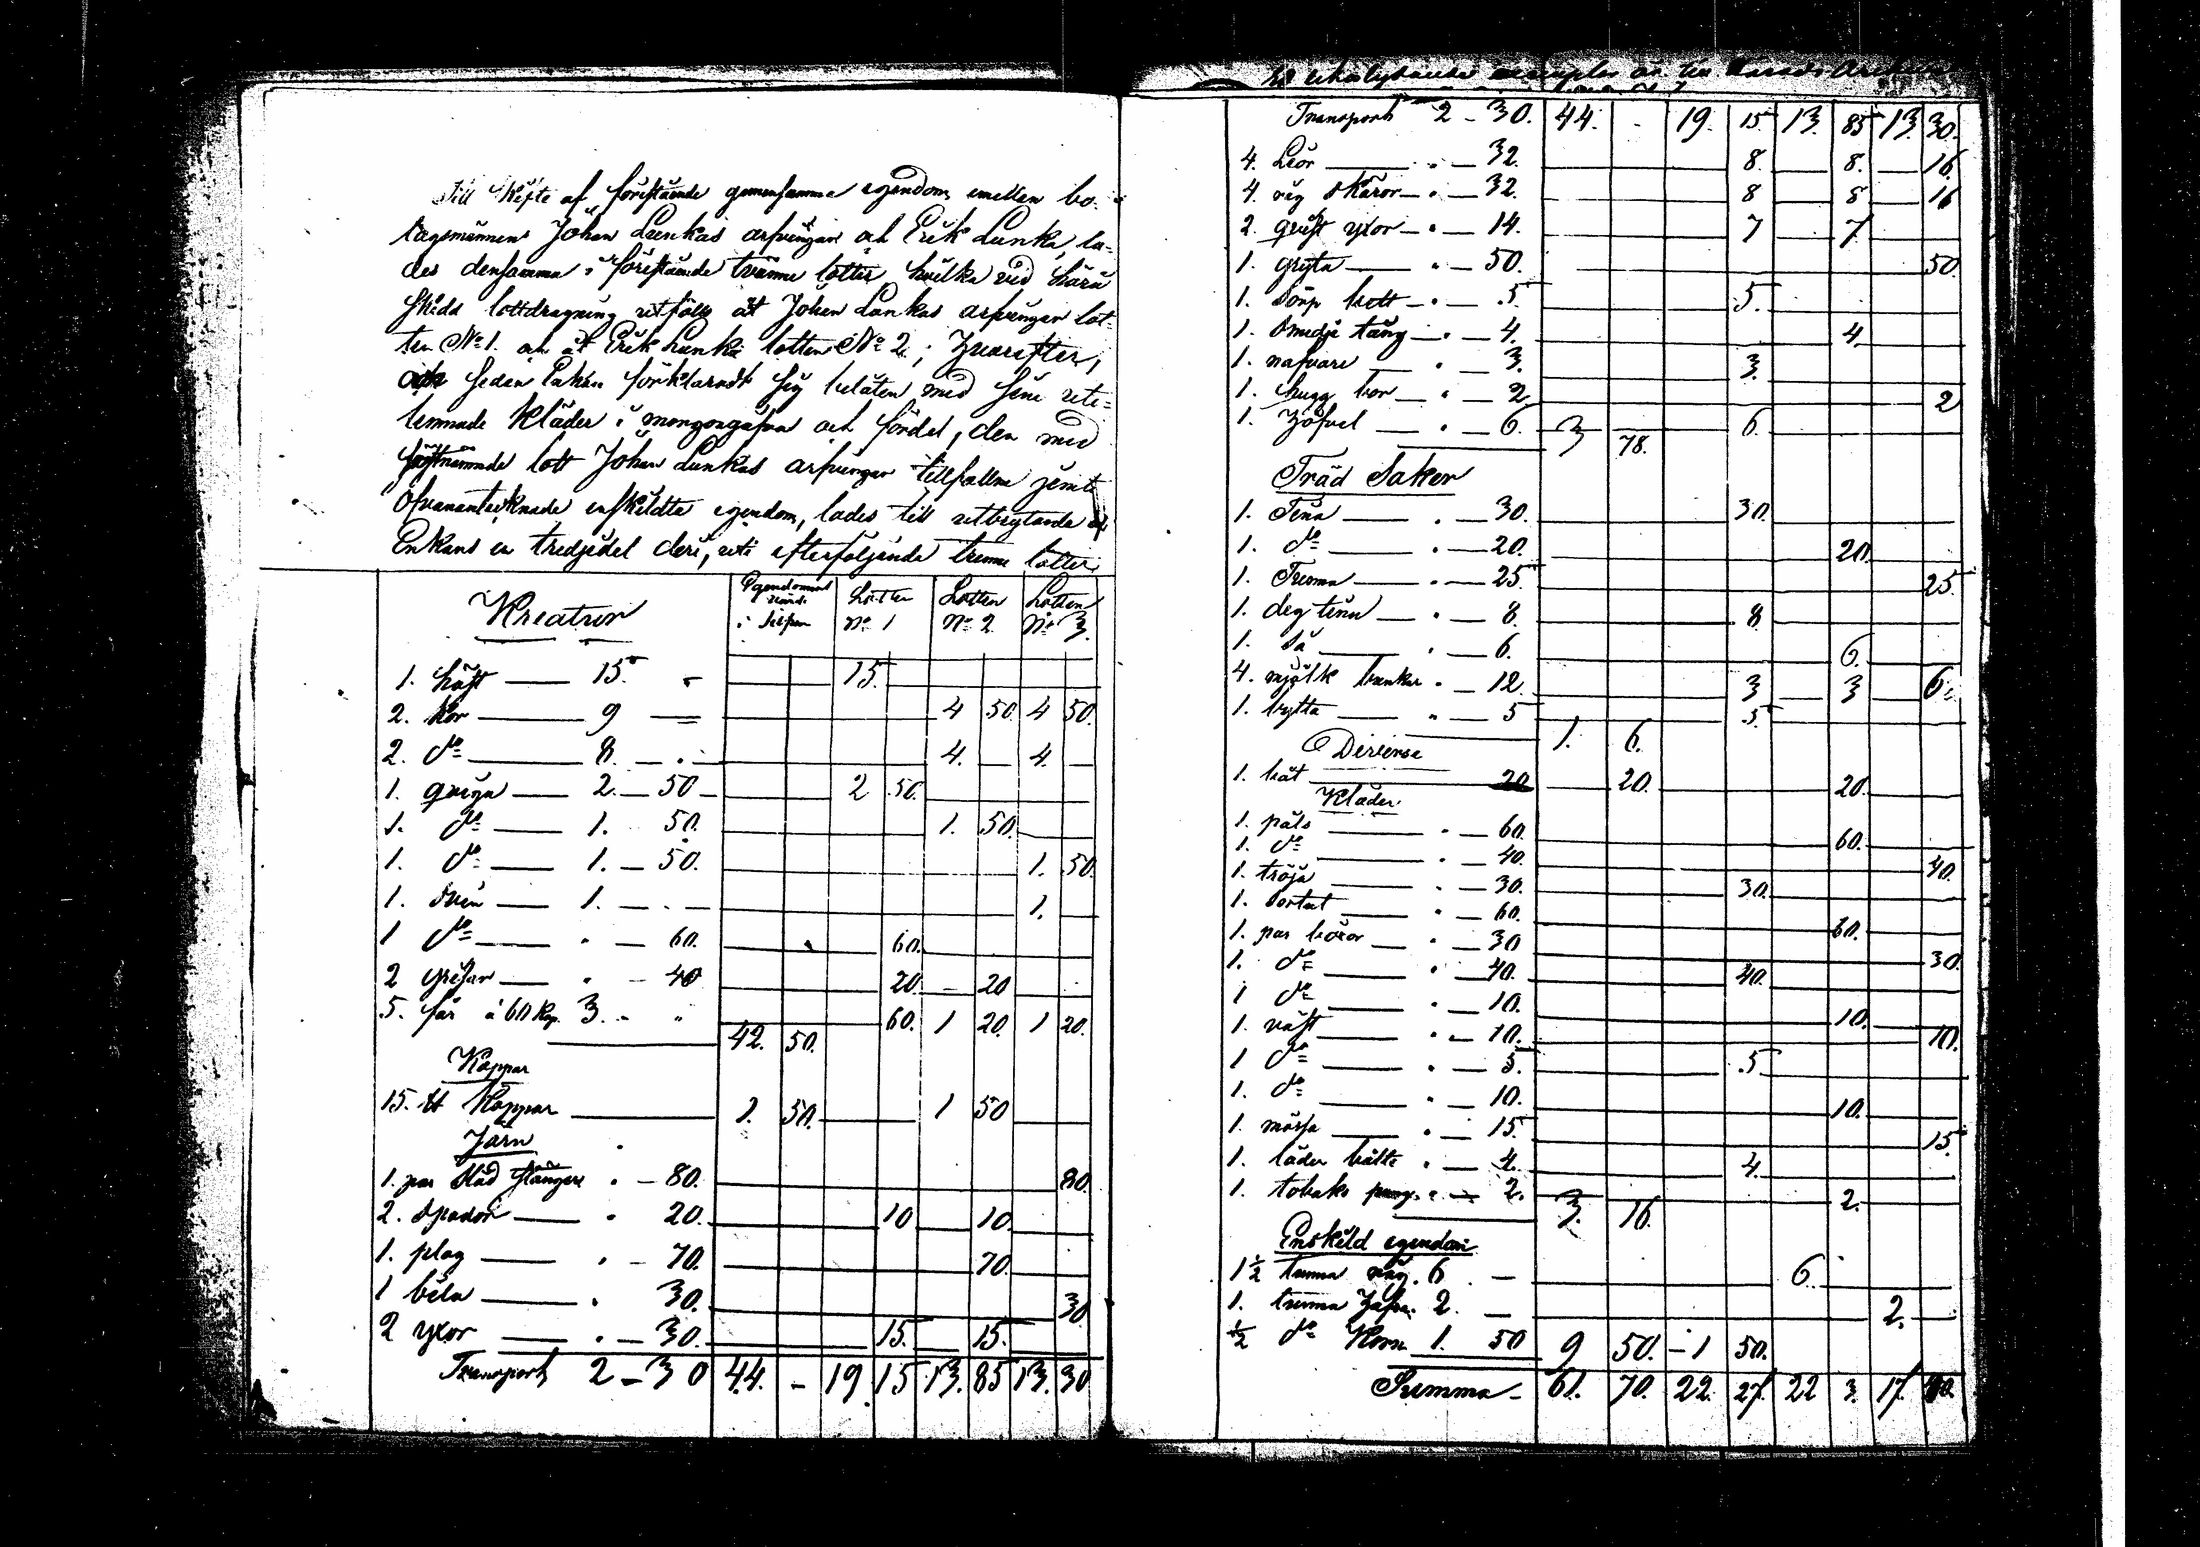 Till skifte af förestående gemensamma egendom, emellan bo-
lagsmännens Johan Lunkas arfvingar och Erik Lunka, la-
des densamma i förestånde tvänne lotter hvilka vid härå
skedd lottdragning utfölls åt Johan Lunkas arfvingar lot-
ten No 1. och åt Erik Lunka lotten No 2; Hvarefter,
och sedan Enkan förklarat sig belåten med sine ute-
lemnade kläder i morgongåfva och fördel, den med
lott Johan Lunkas arfvingar tillfallne jemte
ofvanantecknade enskildta egendom, lades till utbrytande af
Enkans en tredjedel deri, uti efterföljande trenne lotter.
Kreatur Egendomens värde i Silfver Lotten No 1 Lotten No 2 Lotten No 3.
1. häst 15. 15.
2. Kor 9 4 50. 4 50.
2. do 8. 4. 4.
1. qviga 2. 50 2 50.
1. do 1. 50. 1. 50.
1. do 1. 50. 1. 50.
1. Svin 1. 1.
1 do 60. 60.
2 grisar 40 20. 20
5. får à 60 Kop. 3. 60. 1 20. 1 20.
42. 50.
Koppar
15. ℔ Koppar 1. 50. 1 50
Järn
1. par Släd stänger 80. 80.
2. Spador 20. 10 10.
1. plog 70. 70.
1 bila 30. 30
2 yxor 30. 15. 15.
Transport 2 - 30 44. - 19. 15 13. 85 13. 30
Et likalydande exemplar är till Härads
Transport 2 - 30. 44. - 19. 15 13. 85 13. 30.
4. Liör 32. 8. 8. 16.
4. råg skäror 32. 8 8 16
2. qvist yxor 14. 7 7
1. gryta 50. 50
1. Sörp kett 5 5.
1. Smidje tång 4. 4.
1. nafvare 3. 3.
1. hugg bor 2. 2
1. Höfvel 6. 3 78. 6.
Träd Saker
1. Tina 30. 30.
1. do 20. 20.
1. Tunna 25 25.
1. deg tinu 8. 8.
1. så 6. 6.
4. mjölk bunkar 12. 3 3 6.
1. bytta 5 5
1. 6.
Diverse
1. båt 20 20. 20.
Kläder
1. päls 60. 60.
1. do 40. 40.
1. tröja 30. 30.
1. Sortut 60. 60.
1. par böxor 30 30.
1. do 40. 40.
1 do 10. 10.
1. väst 10. 10.
1 do 5. 5
1. do 10. 10.
1. mössa 15. 15
1. läder bälte 4. 4.
1. tobaks pung 2. 2.
3. 16.
Enskild egendom
1½ tunna råg. 6 6.
1. tunna Hafra. 2. 2.
½ do Korn 1. 50 9 50. 1 50.
Summa 61. 70. 22. 27. 22 3. 17.